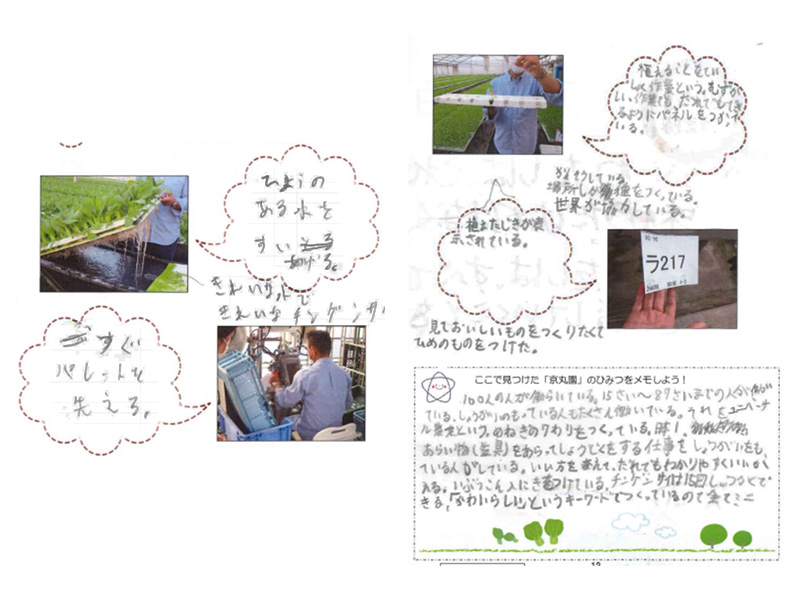 ひようの
ある水を
すい
あげる。
きれいな水で
きれいなチンゲンサ
すぐ
パレットを
洗える。
植えることをてい
しょく作業という。むずかし
い作業でも、だれでもでき
るようにパネルをつかって
いる。
場所しか種をつくっている。
世界が協力している。
植えたじきが表
示されている。
ラ217
見ておいしいものをつくりたくて
ひめのものをつけた。
ここで見つけた「京丸園」のひみつをメモしよう!
100人の人が働らいている。15さい〜89さいまでの人が働い
ている。しょうがいのもっている人もたくさん働いている。それをユニバーサ
ル農業という。めねぎの7わりをつくっている。
あらい物(道具)をあらってしょうどくをする仕事をしょうがいをも
ている人がしている。いい方を変えて、だれでもわかりやすくいいか
える。チンゲンサイは15回しゅうかくで
きる。「かわいらしい」というキーワードでつくっているので全てミニ